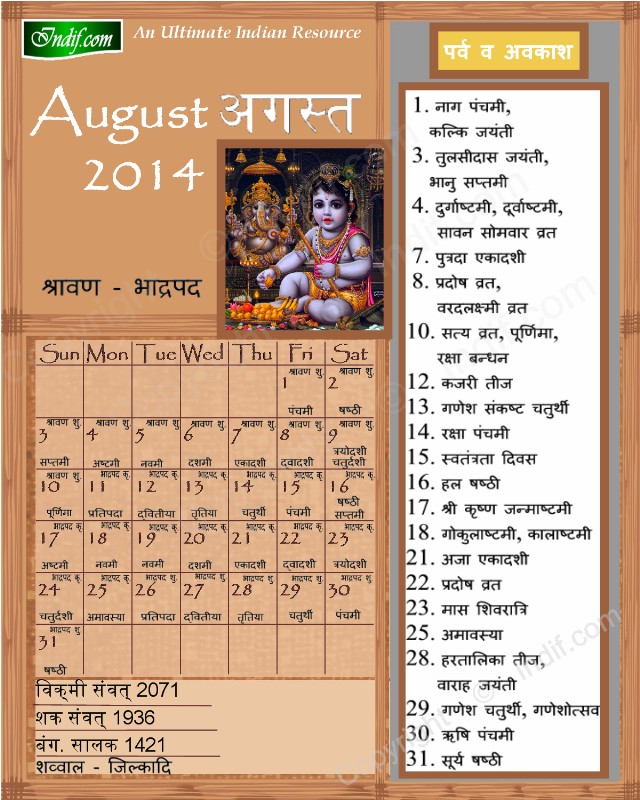 Indif.com
An Ultimate Indian Resource
August अगस्त
2014
श्रावण - भाद्रपद
Sun Mon Tue Wed Thu Fri Sat
श्रावण शु. श्रावण शु.
1 2
पंचमी षष्ठी
श्रावण शु. श्रावण शु. श्रावण शु. श्रावण शु. श्रावण शु. श्रावण शु. श्रावण शु.
3 4 5 6 7 8 9
सप्तमी अष्टमी नवमी दशमी एकादशी द्वादशी त्रयोदशी चतुर्दशी
श्रावण शु. भाद्रपद कृ. भाद्रपद कृ. भाद्रपद कृ. भाद्रपद कृ. भाद्रपद कृ. भाद्रपद कृ.
10 11 12 13 14 15 16
पूर्णिमा प्रतिपदा दवितीया तृतिया चतुर्थी पंचमी षष्ठी सप्तमी
भाद्रपद कृ. भाद्रपद कृ. भाद्रपद कृ. भाद्रपद कृ. भाद्रपद कृ. भाद्रपद कृ. भाद्रपद कृ.
17 18 19 20 21 22 23
अष्टमी नवमी नवमी दशमी एकादशी द्वादशी त्रयोदशी
भाद्रपद कृ. भाद्रपद कृ. भाद्रपद शु. भाद्रपद शु. भाद्रपद शु. भाद्रपद शु. भाद्रपद शु.
24 25 26 27 28 29 30
चतुर्दशी अमावस्या प्रतिपदा दवितीया तृतिया चतुर्थी पंचमी
भाद्रपद शु.
31
षष्ठी
विक्रमी संवत् 2071
शक संवत् 1936
बंग. सालक 1421
शव्वाल - जिल्कादि
पर्व व अवकाश
1. नाग पंचमी,
कल्कि जयंती
3. तुलसीदास जयंती,
भानु सप्तमी
4. दुर्गाष्टमी, दूर्वाष्टमी,
सावन सोमवार व्रत
7. पुत्रदा एकादशी
8. प्रदोष व्रत,
वरदलक्ष्मी व्रत
10. सत्य व्रत, पूर्णिमा,
रक्षा बन्धन
12. कजरी तीज
13. गणेश संकष्ट चतुर्थी
14. रक्षा पंचमी
15. स्वतंत्रता दिवस
16. हल षष्ठी
17. श्री कृष्ण जन्माष्टमी
18. गोकुलाष्टमी, कालाष्टमी
21. अजा एकादशी
22. प्रदोष व्रत
23. मास शिवरात्रि
25. अमावस्या
28. हरतालिका तीज,
वाराह जयंती
29. गणेश चतुर्थी, गणेशोत्सव
30. ऋषि पंचमी
31. सूर्य षष्ठी
Copyright © Indif.com
Copyright © Indif.com